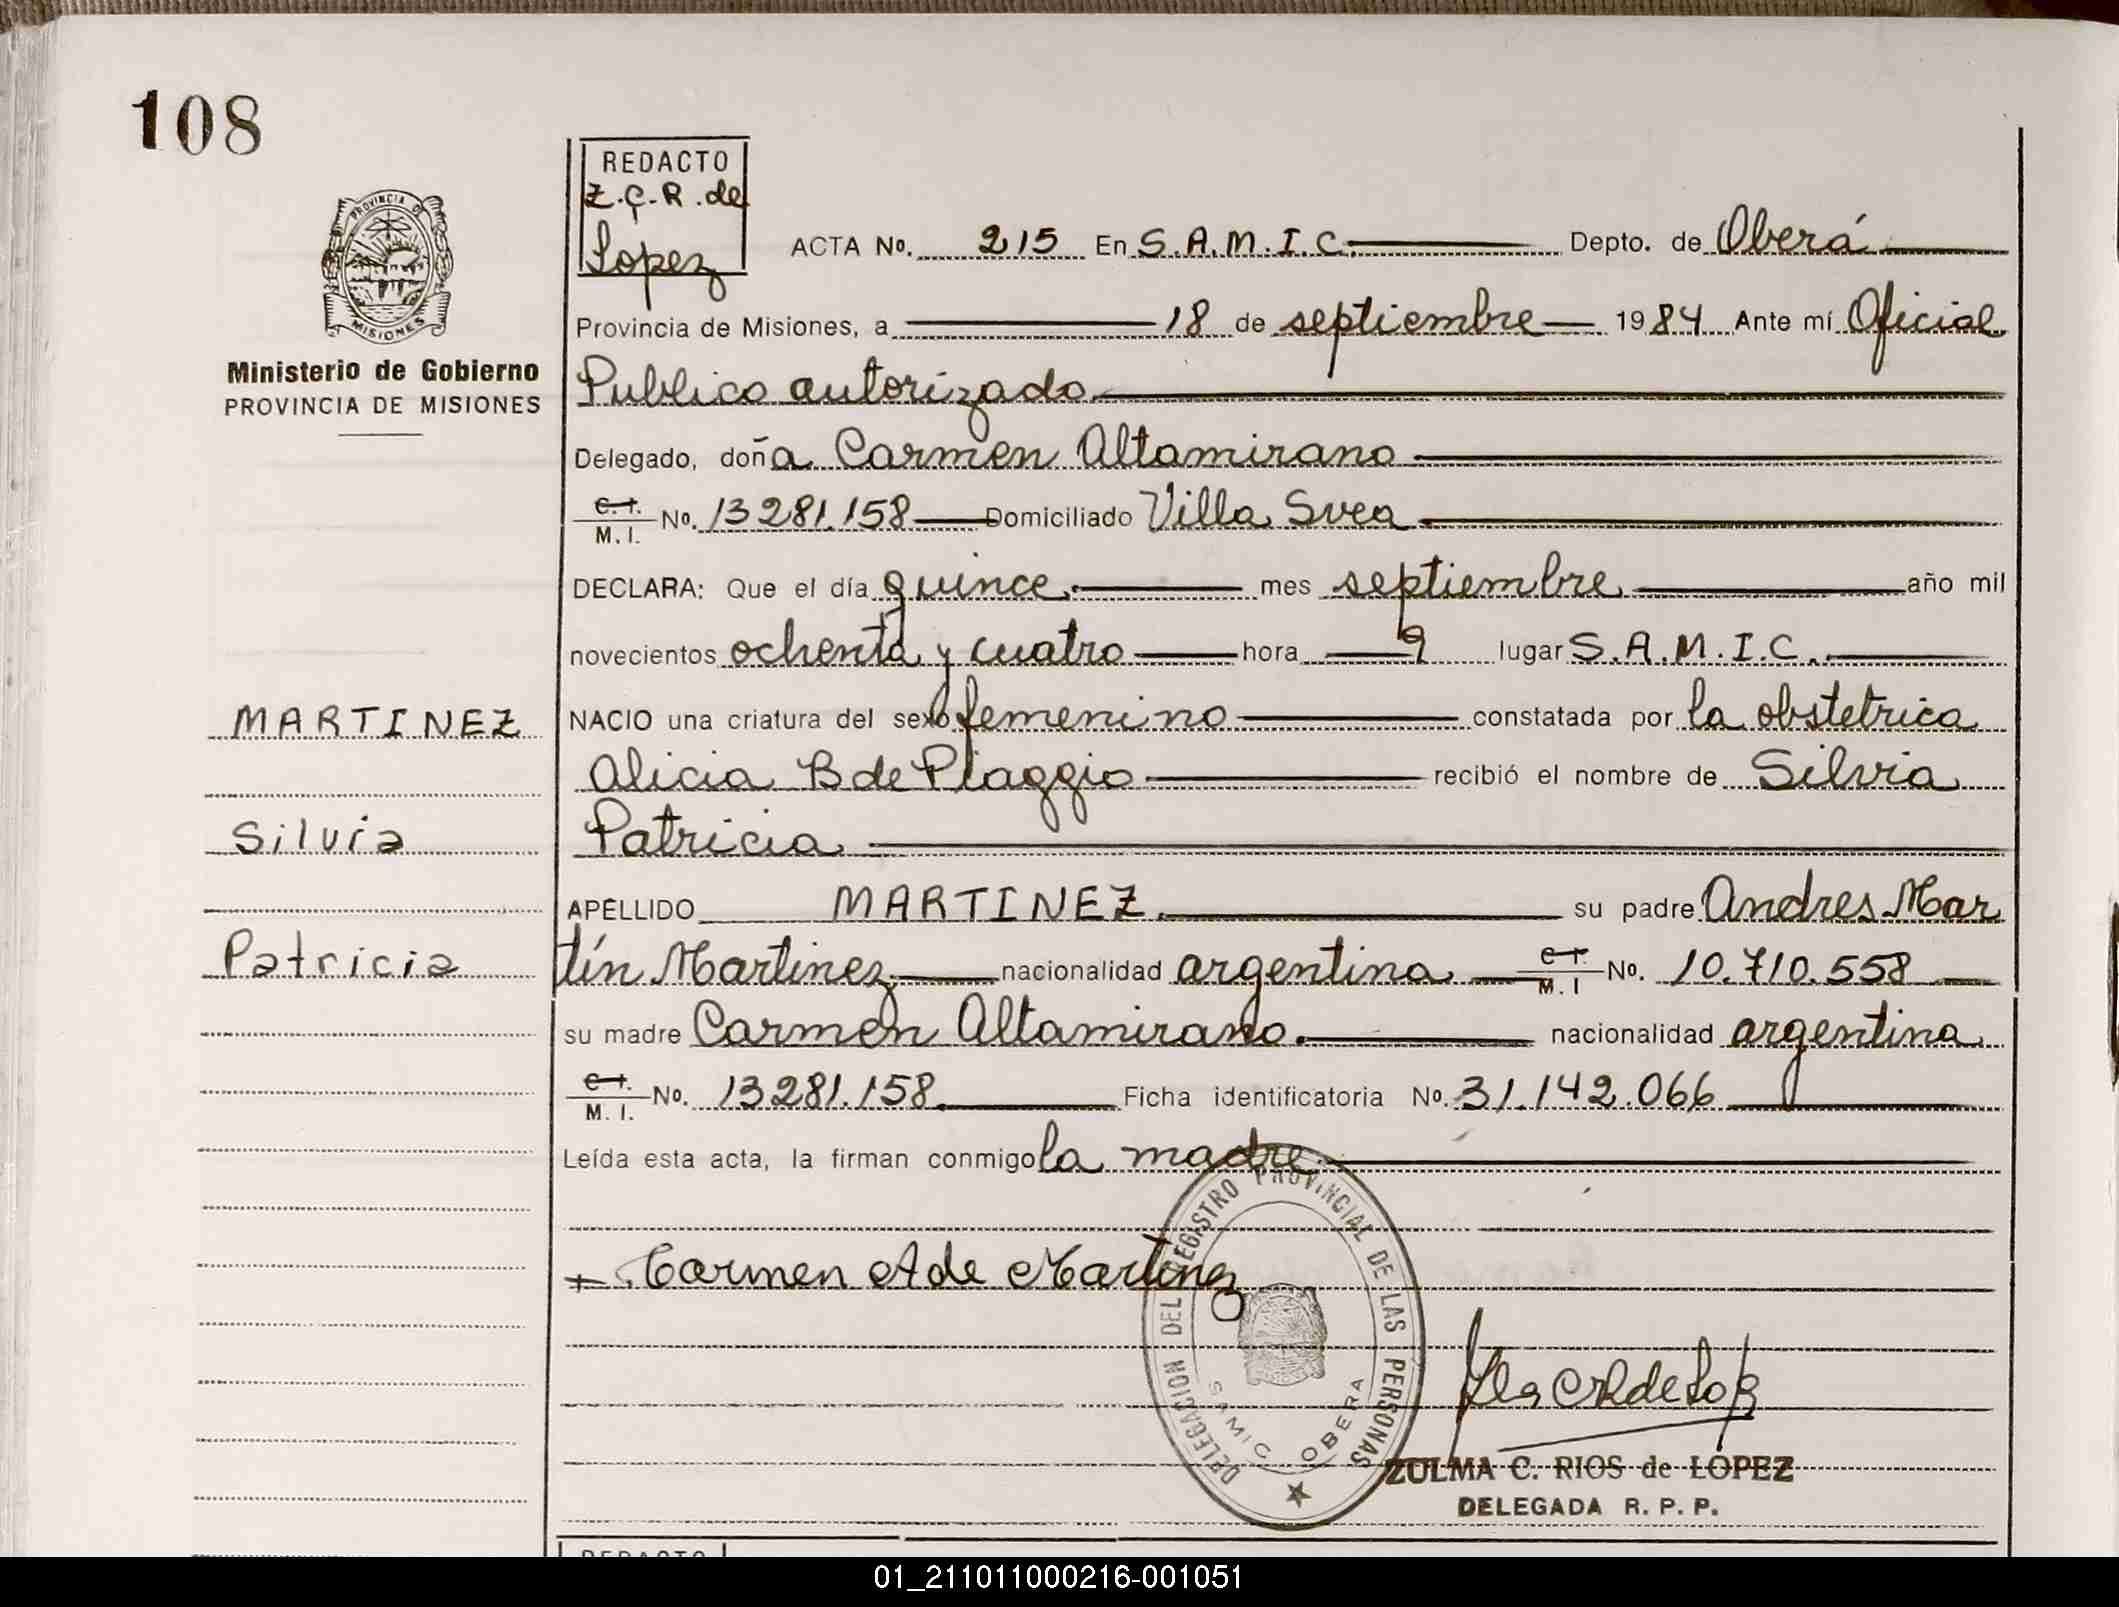 108
REDACTO
Z.C.R. de
Lopez
PROVINCIA DE
MISIONES
ACTA No. 215 En S.A.M.I.C. Depto. de Oberá
Provincia de Misiones, a 18 de septiembre 1984 Ante mí Oficial
Ministerio de Gobierno
PROVINCIA DE MISIONES
Publico autorizado
Delegado, doña Carmen Altamirano
C.I. M.I. No. 13281.158 Domiciliado Villa Svea
DECLARA: Que el día quince mes septiembre año mil
novecientos ochenta y cuatro hora 9 lugar S.A.M.I.C.
MARTINEZ
NACIO una criatura del sexo femenino constatada por la obstetrica
Alicia B de Piaggio recibió el nombre de Silvia
Silvia
Patricia
APELLIDO MARTINEZ su padre Andres Mar
Patricia
tín Martinez nacionalidad argentina C.I. M.I No. 10.710.558
su madre Carmen Altamirano. nacionalidad argentina
C.I. M.I. No. 13281.158. Ficha identificatoria No. 31.142.066
Leída esta acta, la firman conmigo la madre
Carmen A de Martinez
DELEGACION DEL REGISTRO PROVINCIAL DE LAS PERSONAS
SAMIC OBERA
ZULMA C. RIOS de LOPEZ
DELEGADA R. P. P.
REDACTO
01_211011000216-001051